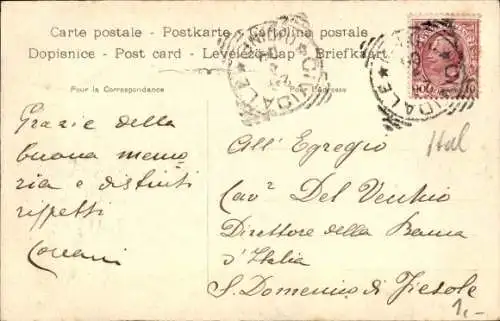 Carte postale - Postkarte - Cartolina postale
Dopisnice - Post card - Levelező-Lap - Briefkaart
CIVIDALE
Pour la Correspondance
Pour l'Adresse
Grazie della
buona memo
ria e distinti
rispetti
Ital
All' Egregio
Cav.r Del Vecchio
Direttore della Banca
d'Italia
S. Domenico di Fiesole
1,-